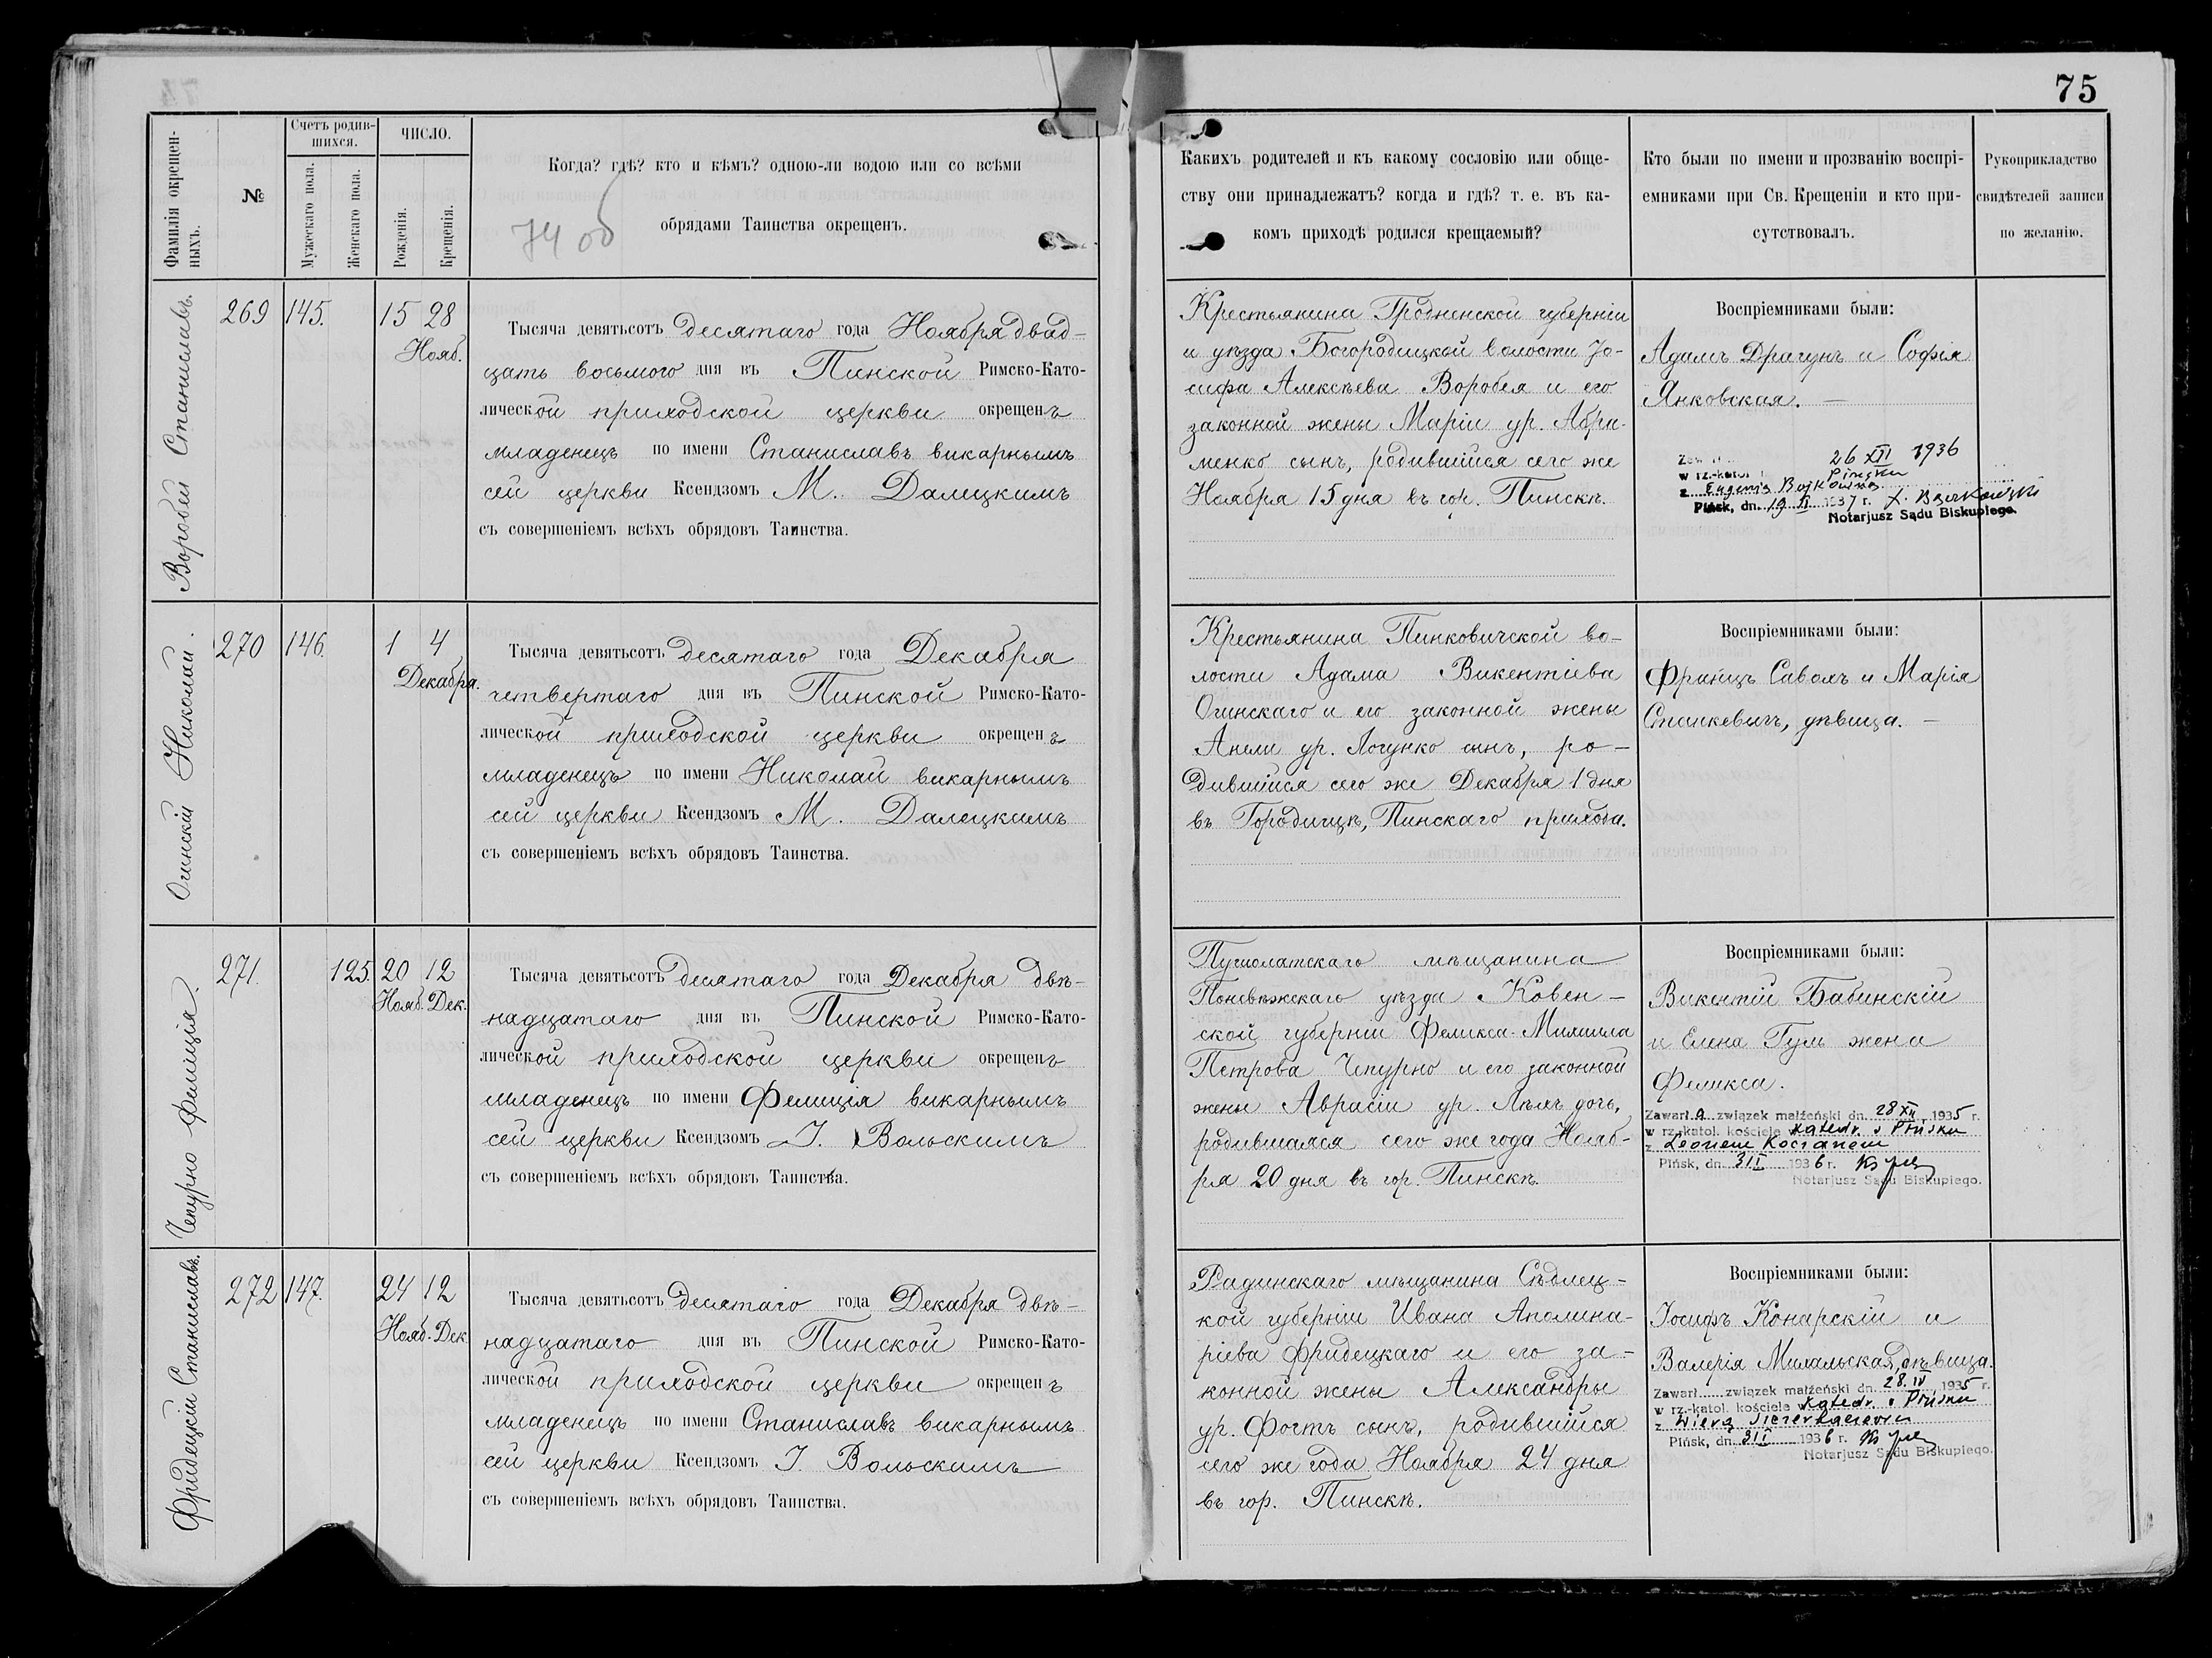 75
Фамилія окрещен-
ныхъ.
№
Счетъ родив-
шихся.
Мужескаго пола.
Женскаго пола.
ЧИСЛО.
Рожденія.
Крещенія.
Когда? гдѣ? кто и кѣмъ? одною-ли водою или со всѣми
обрядами Таинства окрещенъ.
74 об
Какихъ родителей и къ какому сословію или обще-
ству они принадлежатъ? когда и гдѣ? т. е. въ ка-
комъ приходѣ родился крещаемый?
Кто были по имени и прозванію воспрі-
емниками при Св. Крещеніи и кто при-
сутствовалъ.
Рукоприкладство
свидѣтелей записи
по желанію.
Воробей Станиславъ.
269 145. 15 28
Нояб.
Тысяча девятьсотъ десятаго года Ноября двад-
цать восьмого дня въ Пинской Римско-Като-
лической приходской церкви окрещенъ
младенецъ по имени Станиславъ викарнымъ
сей церкви Ксендзомъ М. Далецкимъ
съ совершеніемъ всѣхъ обрядовъ Таинства.
Крестьянина Гродненской губерніи
и уѣзда Богородицкой волости Іо-
сифа Алексѣева Воробея и его
законной жены Маріи ур. Абра-
менко сынъ, родившійся сего же
Ноября 15 дня въ гор. Пинскѣ.
Воспріемниками были:
Адамъ Драгунъ и Софія
Янковская. —
26 XII 1936
w rz.-katol Pińsku
z Eugenią
Pińsk, dn. 19 1937 r.
Notarjusz Sądu Biskupiego.
Огинскій Николай.
270 146. 1 4
Декабря.
Тысяча девятьсотъ десятаго года Декабря
четвертаго дня въ Пинской Римско-Като-
лической приходской церкви окрещенъ
младенецъ по имени Николай викарнымъ
сей церкви Ксендзомъ М. Далецкимъ
съ совершеніемъ всѣхъ обрядовъ Таинства.
Крестьянина Пинковичской во-
лости Адама Викентіева
Огинскаго и его законной жены
Анели ур. Логунко сынъ, ро-
дившійся сего же Декабря 1 дня
въ Городищѣ, Пинскаго прихода.
Воспріемниками были:
Францъ Саволъ и Марія
Станкевичъ, дѣвица. —
Чепурно Фелиція.
271. 125. 20 12
Нояб. Дек.
Тысяча девятьсотъ десятаго года Декабря двѣ-
надцатаго дня въ Пинской Римско-Като-
лической приходской церкви окрещенъ
младенецъ по имени Фелиція викарнымъ
сей церкви Ксендзомъ І. Вольскимъ
съ совершеніемъ всѣхъ обрядовъ Таинства.
Пушолатскаго мѣщанина
Поневѣжскаго уѣзда Ковен-
ской губерніи Феликса-Михаила
Петрова Чепурно и его законной
жены Аврасіи ур. Лѣхъ дочь,
родившаяся сего же года Нояб-
ря 20 дня въ гор. Пинскѣ.
Воспріемниками были:
Викентій Бабинскій
и Елена Гуль жена
Феликса.
Zawarł a związek małżeński dn. 28 XII 1935 r.
w rz.-katol. kościele w katedr. w Pińsku
z Leonem Kocianem
Pińsk, dn. 31 I 1936 r.
Notarjusz Sądu Biskupiego.
Фридецкій Станиславъ.
272 147. 24 12
Нояб. Дек.
Тысяча девятьсотъ десятаго года Декабря двѣ-
надцатаго дня въ Пинской Римско-Като-
лической приходской церкви окрещенъ
младенецъ по имени Станиславъ викарнымъ
сей церкви Ксендзомъ І. Вольскимъ
съ совершеніемъ всѣхъ обрядовъ Таинства.
Радинскаго мѣщанина Сѣдлец-
кой губерніи Ивана Аполина-
ріева Фридецкаго и его за-
конной жены Александры
ур. Фогтъ сынъ, родившійся
сего же года Ноября 24 дня
въ гор. Пинскѣ.
Воспріемниками были:
Іосифъ Конарскій и
Валерія Михальская, дѣвица.
Zawarł związek małżeński dn. 28. IV 1935 r.
w rz.-katol. kościele w katedr. w Pińsku
z Wierą
Pińsk, dn. 31 I 1936 r.
Notarjusz Sądu Biskupiego.